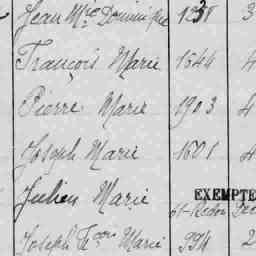 Jean Mie Dominique 1231 3
François Marie 1544 4
Pierre Marie 1903 4
Joseph Marie 1601 4
Julien Marie EXEMPTÉ
Joseph Marie 994 2